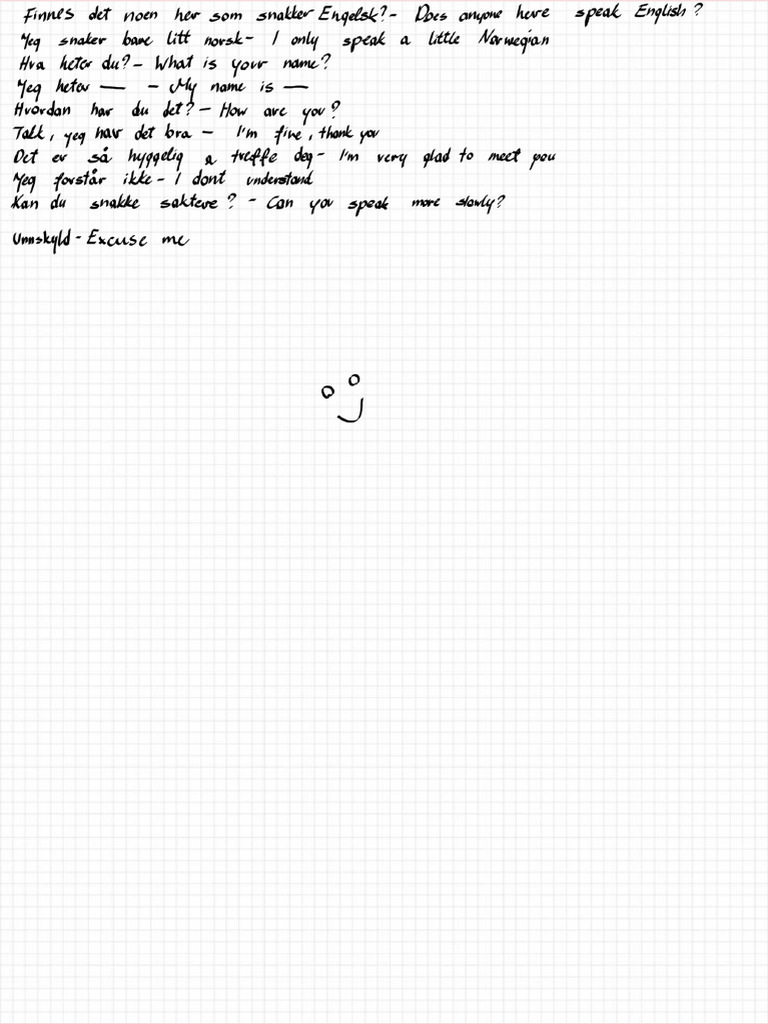 Finnes det noen her som snakker Engelsk? - Does anyone here speak English?
Yeg snaker bare litt norsk - I only speak a little Norwegian
Hva heter du? - What is your name?
Yeg heter — - My name is —
Hvordan har du det? - How are you?
Takk, yeg har det bra - I'm fine, thank you
Det er så hyggelig a treffe deg - I'm very glad to meet you
Yeg forstår ikke - I dont understand
Kan du snakke saktere? - Can you speak more slowly?
Unnskyld - Excuse me